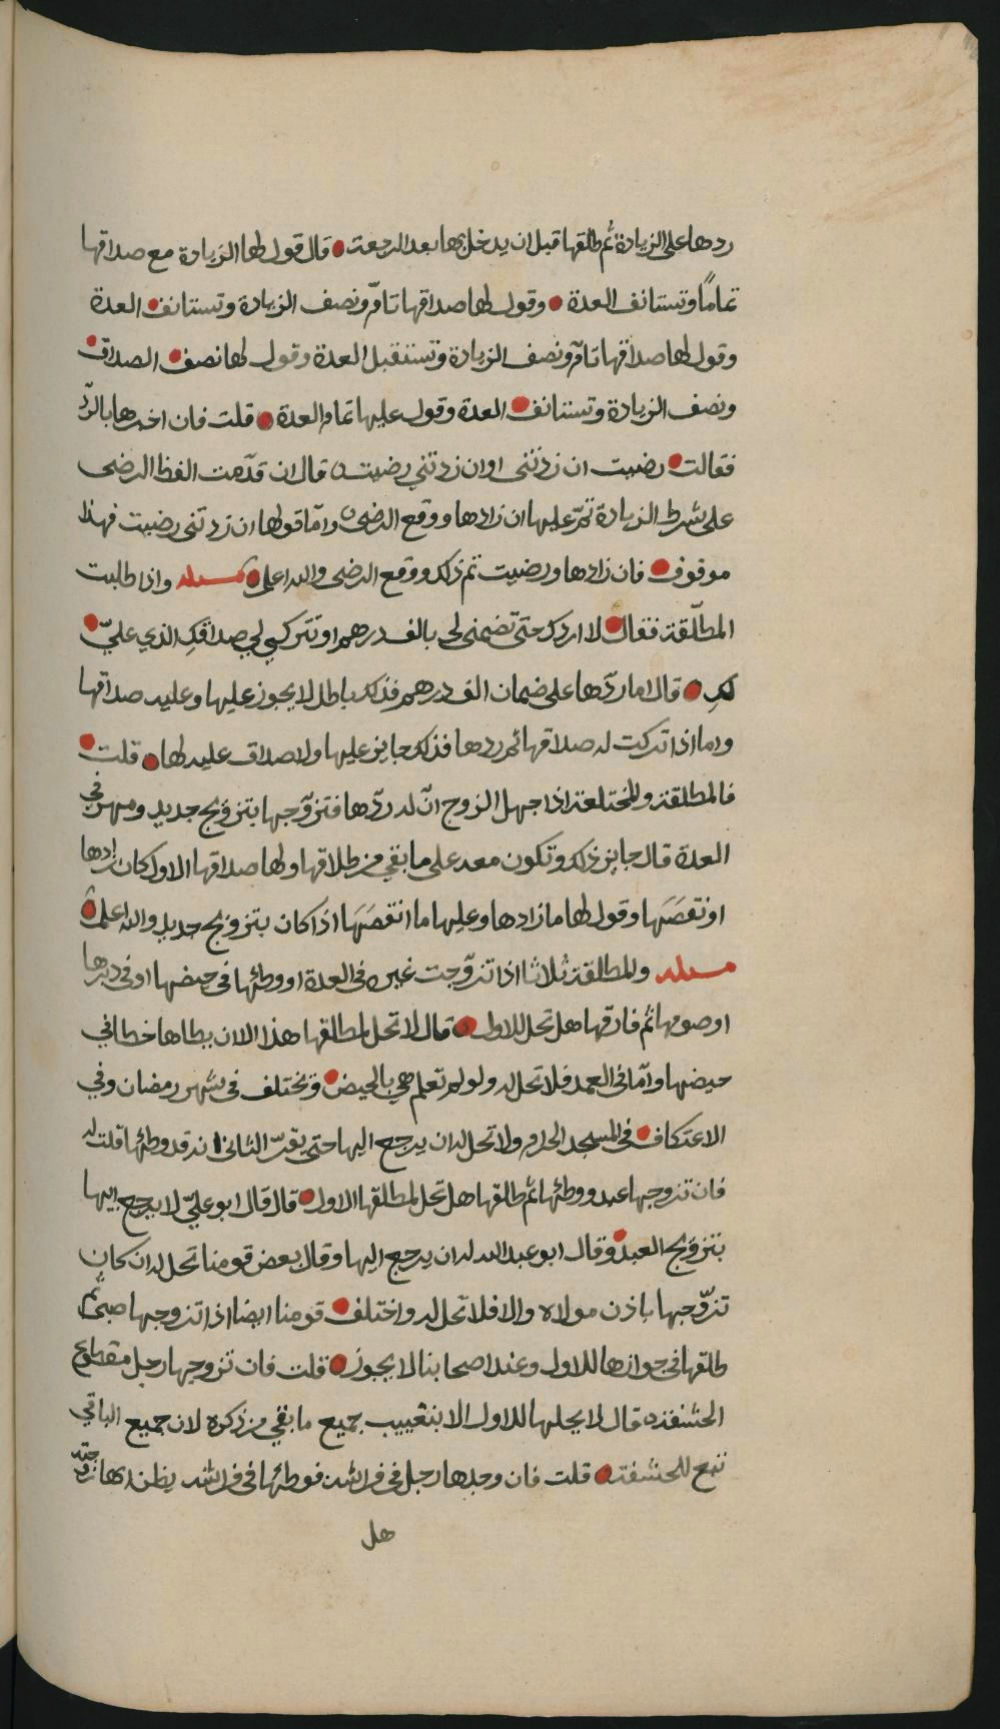 ردها على الزيادة ثم طلقها قبل ان يدخل بها بعد الرجعة قال قول لها الزيادة مع صداقها
تمامًا وتستانف العدة وقول لها صداقها تامّ ونصف الزيادة وتستانف العدة
وقول لها صداقها تامّ ونصف الزيادة وتستقبل العدة وقول لها نصف الصداق
ونصف الزيادة وتستانف العدة وقول عليها تمام العدة قلت فان اخبرها بالردّ
فقالت رضيت ان زدتني او ان زدتني رضيت قال ان قدّمت الفظ الرضى
على شرط الزيادة تمّ عليها ان زادها ووقع الرضى وامّا قولها ان زدتني رضيت فهذا
موقوف فان زادها ورضيت تم ذلك ووقع الرضى والله اعلم مسئله واذا طلبت
المطلّقة فقال لا اردك حتى تضمني لي بالف درهم او تتركي لي صداقكِ الذي عليّ
لكِ قال اما ردّها على ضمان الف درهم فذلك باطل لا يجوز عليها وعليه صداقها
واما اذا تركت له صداقها ثم ردها فذلك جايز عليها ولا صداق عليه لها قلت
فالمطلقة والمختلعة اذا جهل الزوج انّ له ردّها فتزوّجها بتزويج جديد ومهر في
العدة قال جايز ذلك وتكون معه على ما بقي من طلاقها ولها صداقها الاول كان زادها
او نقصَهَا وقول لها ما زادها وعليها ما انتقصَهَا اذا كان بتزويج جديد والله اعلم
مسئله والمطلقة ثلاثا اذا تزوّجت غيره في العدة او وطئها في حيضها او في دبرها
او صومها ثم فارقها هل تحل للاول قال لا تحل لمطلقها هذا الا ان يطاها خطا في
حيضها وامّا في العمد فلا تحل له ولو لم تعلم هي بالحيض ونختلف في شهر رمضان وفي
الاعتكاف في المسجد الحرام ولا تحل له ان يرجع اليها حتى يقرّ الثاني انه قد وطئها قلت له
فان تزوجها عبد ووطئها ثم طلقها هل تحل لمطلقها الاول قال قال ابو عليّ لا يرجع اليها
بتزويج العبد وقال ابو عبد الله له ان يرجع اليها وقال بعض قومنا تحل له ان كان
تزوّجها باذن مولاه والا فلا تحل له واختلف قومنا ايضا اذا تزوجها صبي ثم
طلقها في جوازها للاول وعند اصحابنا لا يجوز قلت فان تزوجها رجل مقطوع
الحشفة قال لا يحلها للاول الا بتغييب جميع ما بقي من ذكره لان جميع الباقي
تبع للحشفة قلت فان وجدها رجل في فراشه فوطئها في فراشه يظن بها زوجته
هل